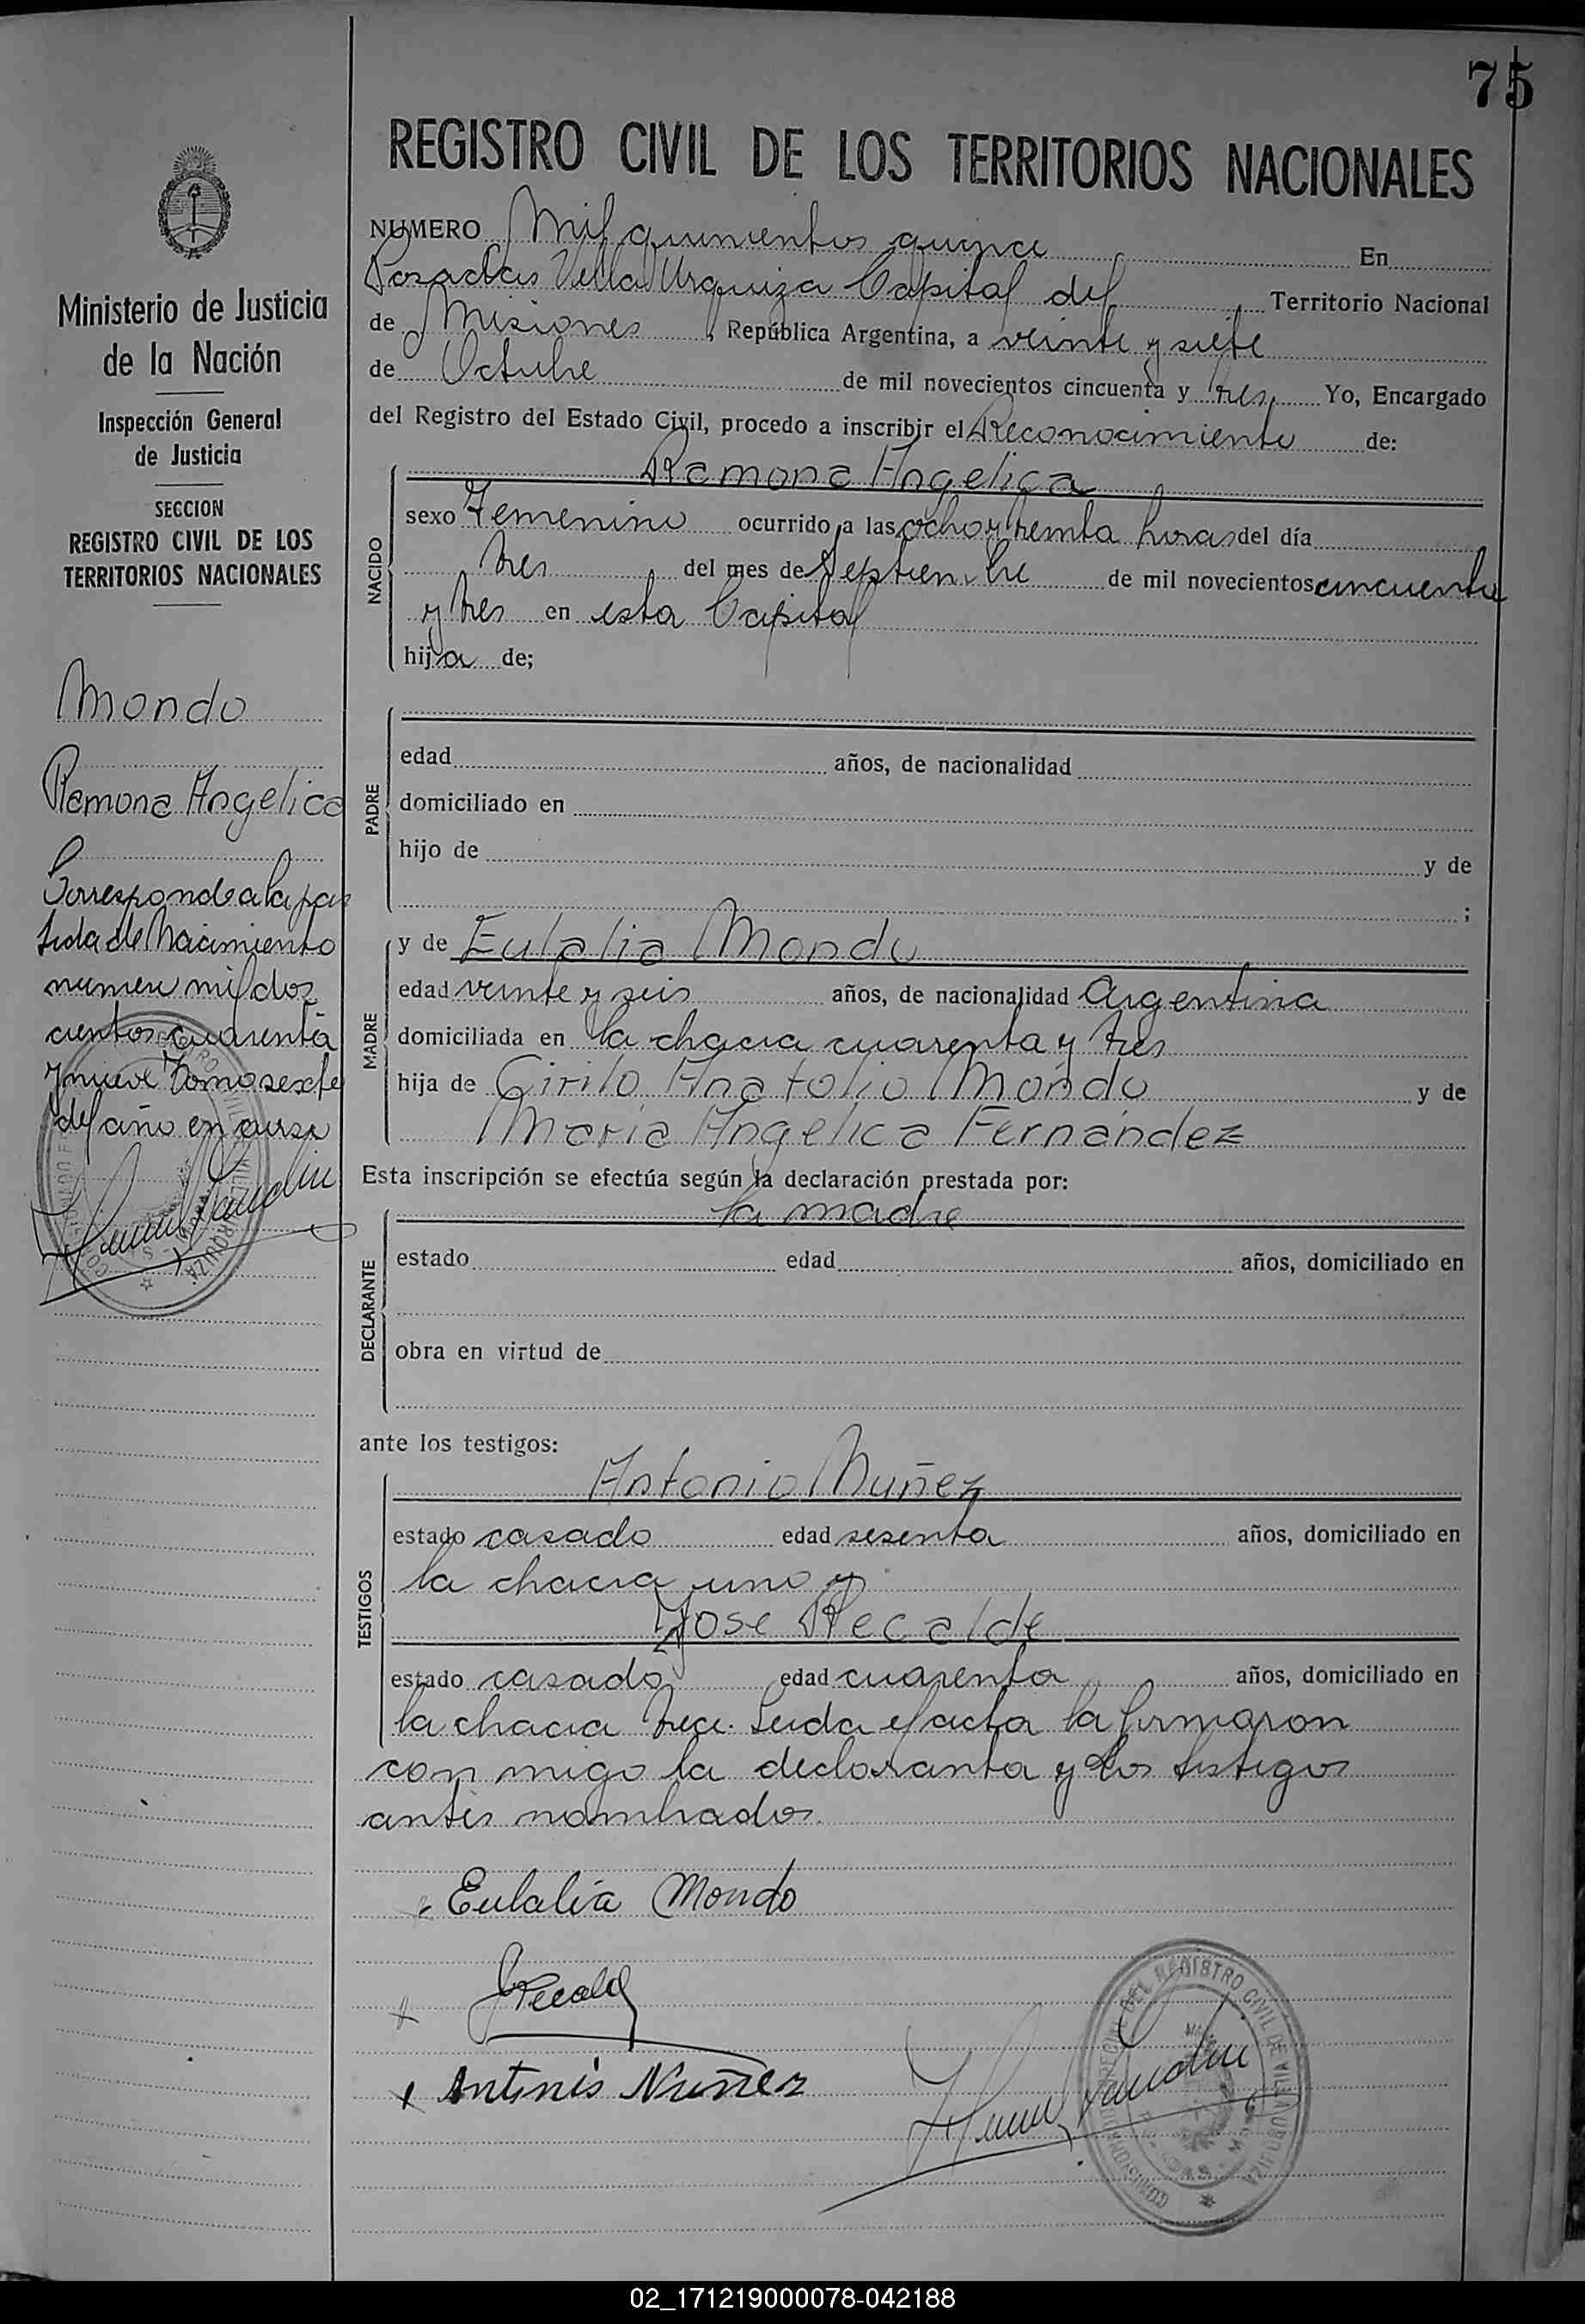 75
REGISTRO CIVIL DE LOS TERRITORIOS NACIONALES
NUMERO Mil quinientos quince En
Posadas Villa Urquiza Capital del Territorio Nacional
de Misiones, República Argentina, a veinte y siete
de Octubre de mil novecientos cincuenta y tres Yo, Encargado
del Registro del Estado Civil, procedo a inscribir el Reconocimiento de:
Ramona Angelica
NACIDO
sexo Femenino ocurrido a las ocho y treinta horas del día
tres del mes de Septiembre de mil novecientos cincuenta
y tres en esta Capital
hija de;
PADRE
edad años, de nacionalidad
domiciliado en
hijo de y de
;
MADRE
y de Eulalia Mondo
edad veinte y seis años, de nacionalidad Argentina
domiciliada en la chacra cuarenta y tres
hija de Cirilo Anatolio Mondo y de
Maria Angélica Fernández
Esta inscripción se efectúa según la declaración prestada por:
la madre
DECLARANTE
estado edad años, domiciliado en
obra en virtud de
ante los testigos:
TESTIGOS
Antonio Nuñez
estado casado edad sesenta años, domiciliado en
la chacra uno y
Jose Recalde
estado casado edad cuarenta años, domiciliado en
la chacra trece. Leida el acta la firmaron
con migo la declaranta y los testigos
antes nombrados.
Eulalia Mondo
JRecalde
Antonio Nuñez
Ministerio de Justicia
de la Nación
Inspección General
de Justicia
SECCION
REGISTRO CIVIL DE LOS
TERRITORIOS NACIONALES
Mondo
Ramona Angelica
Corresponde a la par
tida de Nacimiento
numero mil dos
cientos cuarenta
y nueve Tomo sexto
del año en curso
DEL REGISTRO CIVIL DE VILLA URQUIZA
02_171219000078-042188